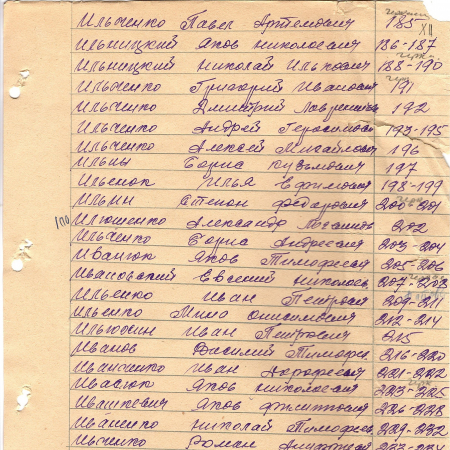 Ильченко Павел Артемович 185
XII
Ильницкий Яков Николаевич 186-187
Ильницкий Николай Илькович 188-190
Ильченко Григорий Иванович 191
Ильченко Дмитрий 192
Ильченко Андрей Герасимович 193-195
Ильченко Алексей Михайлович 196
Ильин Борис Кузьмович 197
Ильенок Илья Ефимович 198-199
Ильин Степан Федорович 200-201
Илюшенко Александр 202
Ильченко Борис Андреевич 203-204
Иванюк Яков Тимофеевич 205-206
Ивановский Евгений Николаев 207-208
Ильенко Иван Петрович 209-211
Ильенко Мино Онисимович 212-214
Ильюхин Иван Петрович 215
Иванов Василий Тимофе 216-220
Иванченко Иван Дорофеевич 221-222
Ивасюк Яков Николаевич 223-225
Ивашкевич Яков 226-228
Иваненко Николай Тимофеев 229-232
Ивченко Роман